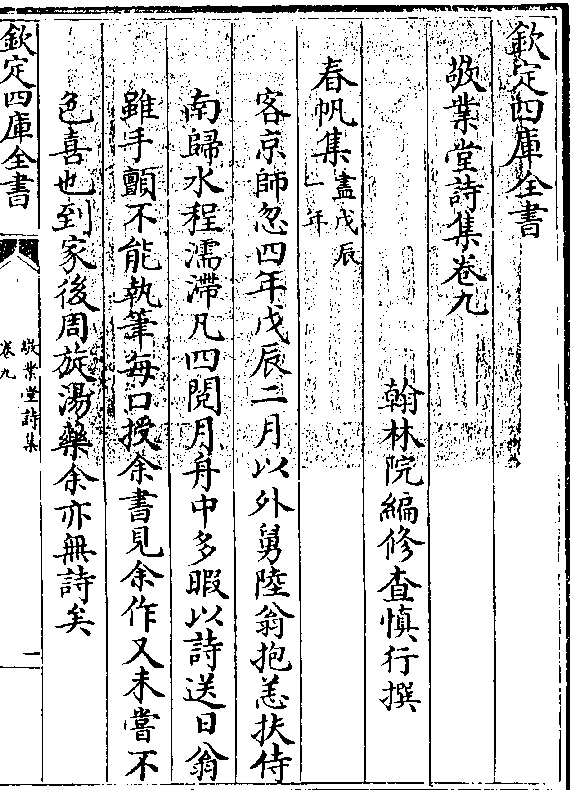 欽定四庫全書
敬業堂詩集卷九
翰林院編修查慎行撰
春帆集盡戊辰一年
客京師忽四年戊辰二月以外舅陸翁抱恙扶侍
南歸水程濡滯凡四閱月舟中多暇以詩送日翁
雖手顫不能執筆每口授余書見余作又未嘗不
色喜也到家後周旋湯藥余亦無詩矣
欽定四庫全書
敬業堂詩集
卷九
一